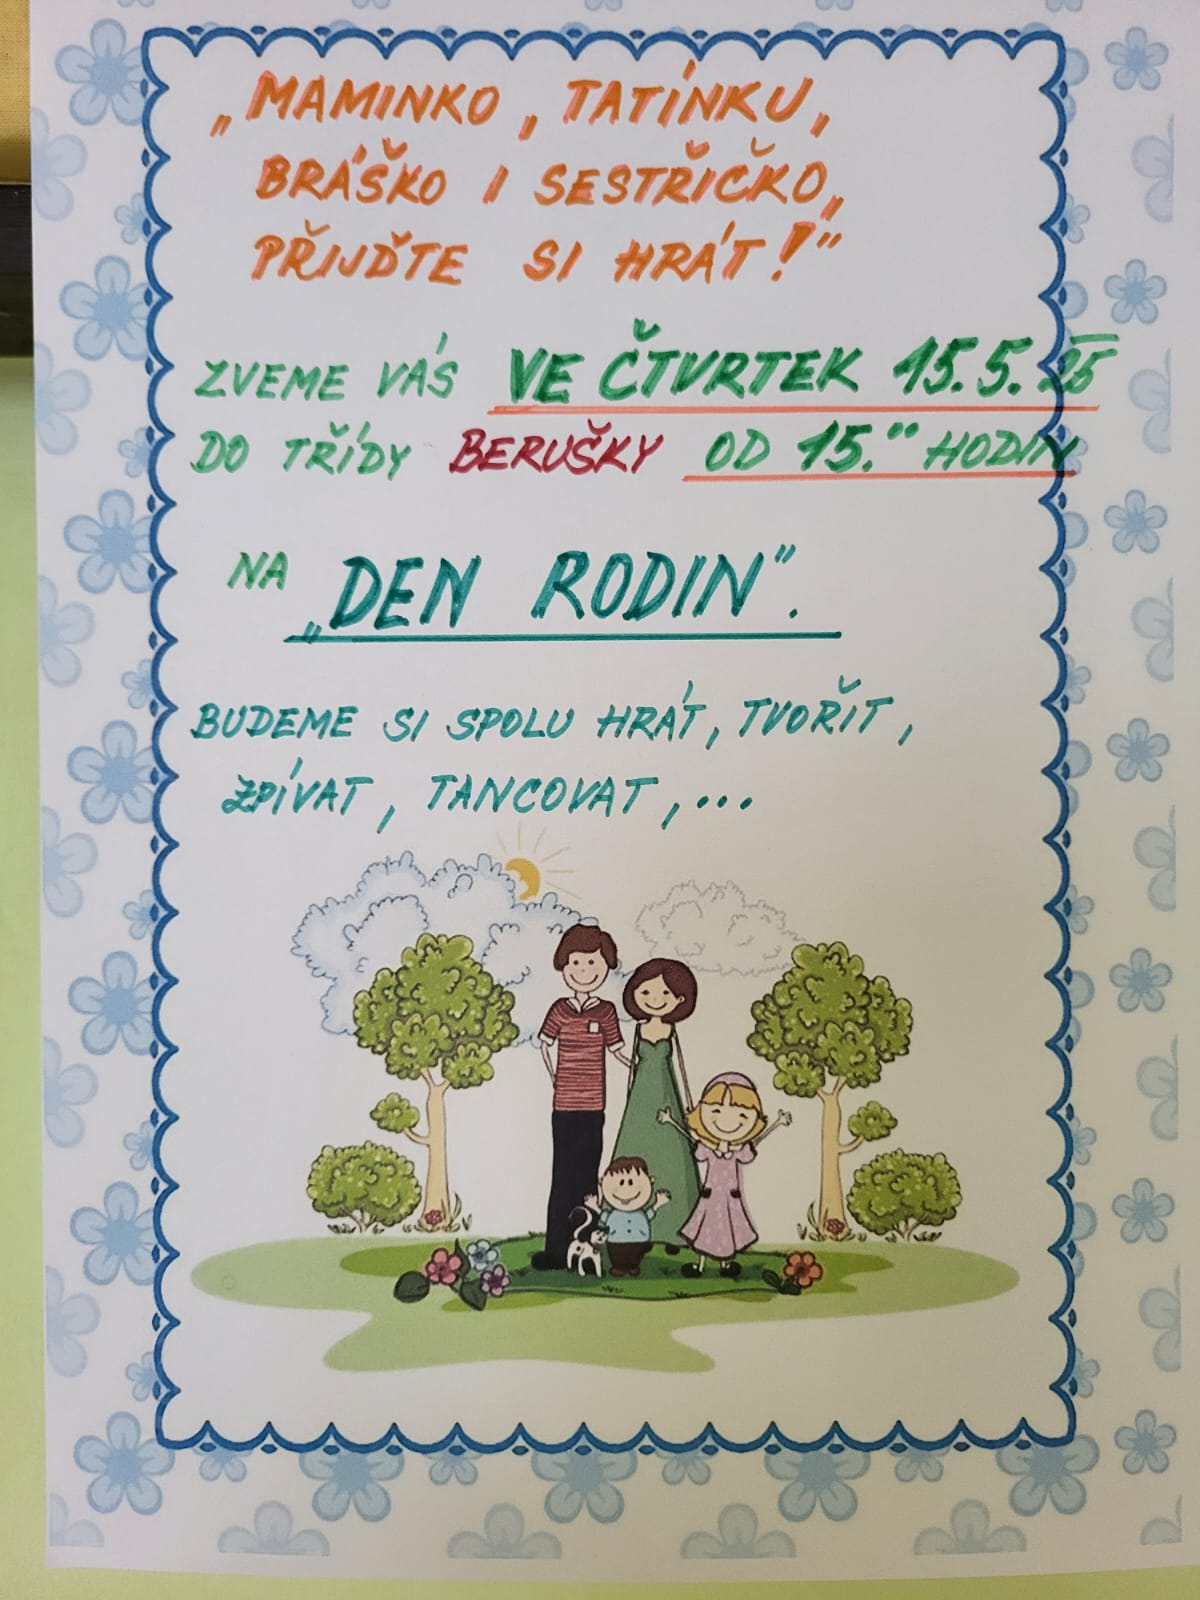 „MAMINKO, TATÍNKU,
BRÁŠKO I SESTŘIČKO,
PŘIJĎTE SI HRÁT!"
ZVEME VÁS VE ČTVRTEK 15.5.25
DO TŘÍDY BERUŠKY OD 15.°° HODIN
NA „DEN RODIN".
BUDEME SI SPOLU HRÁT, TVOŘIT,
ZPÍVAT, TANCOVAT,...